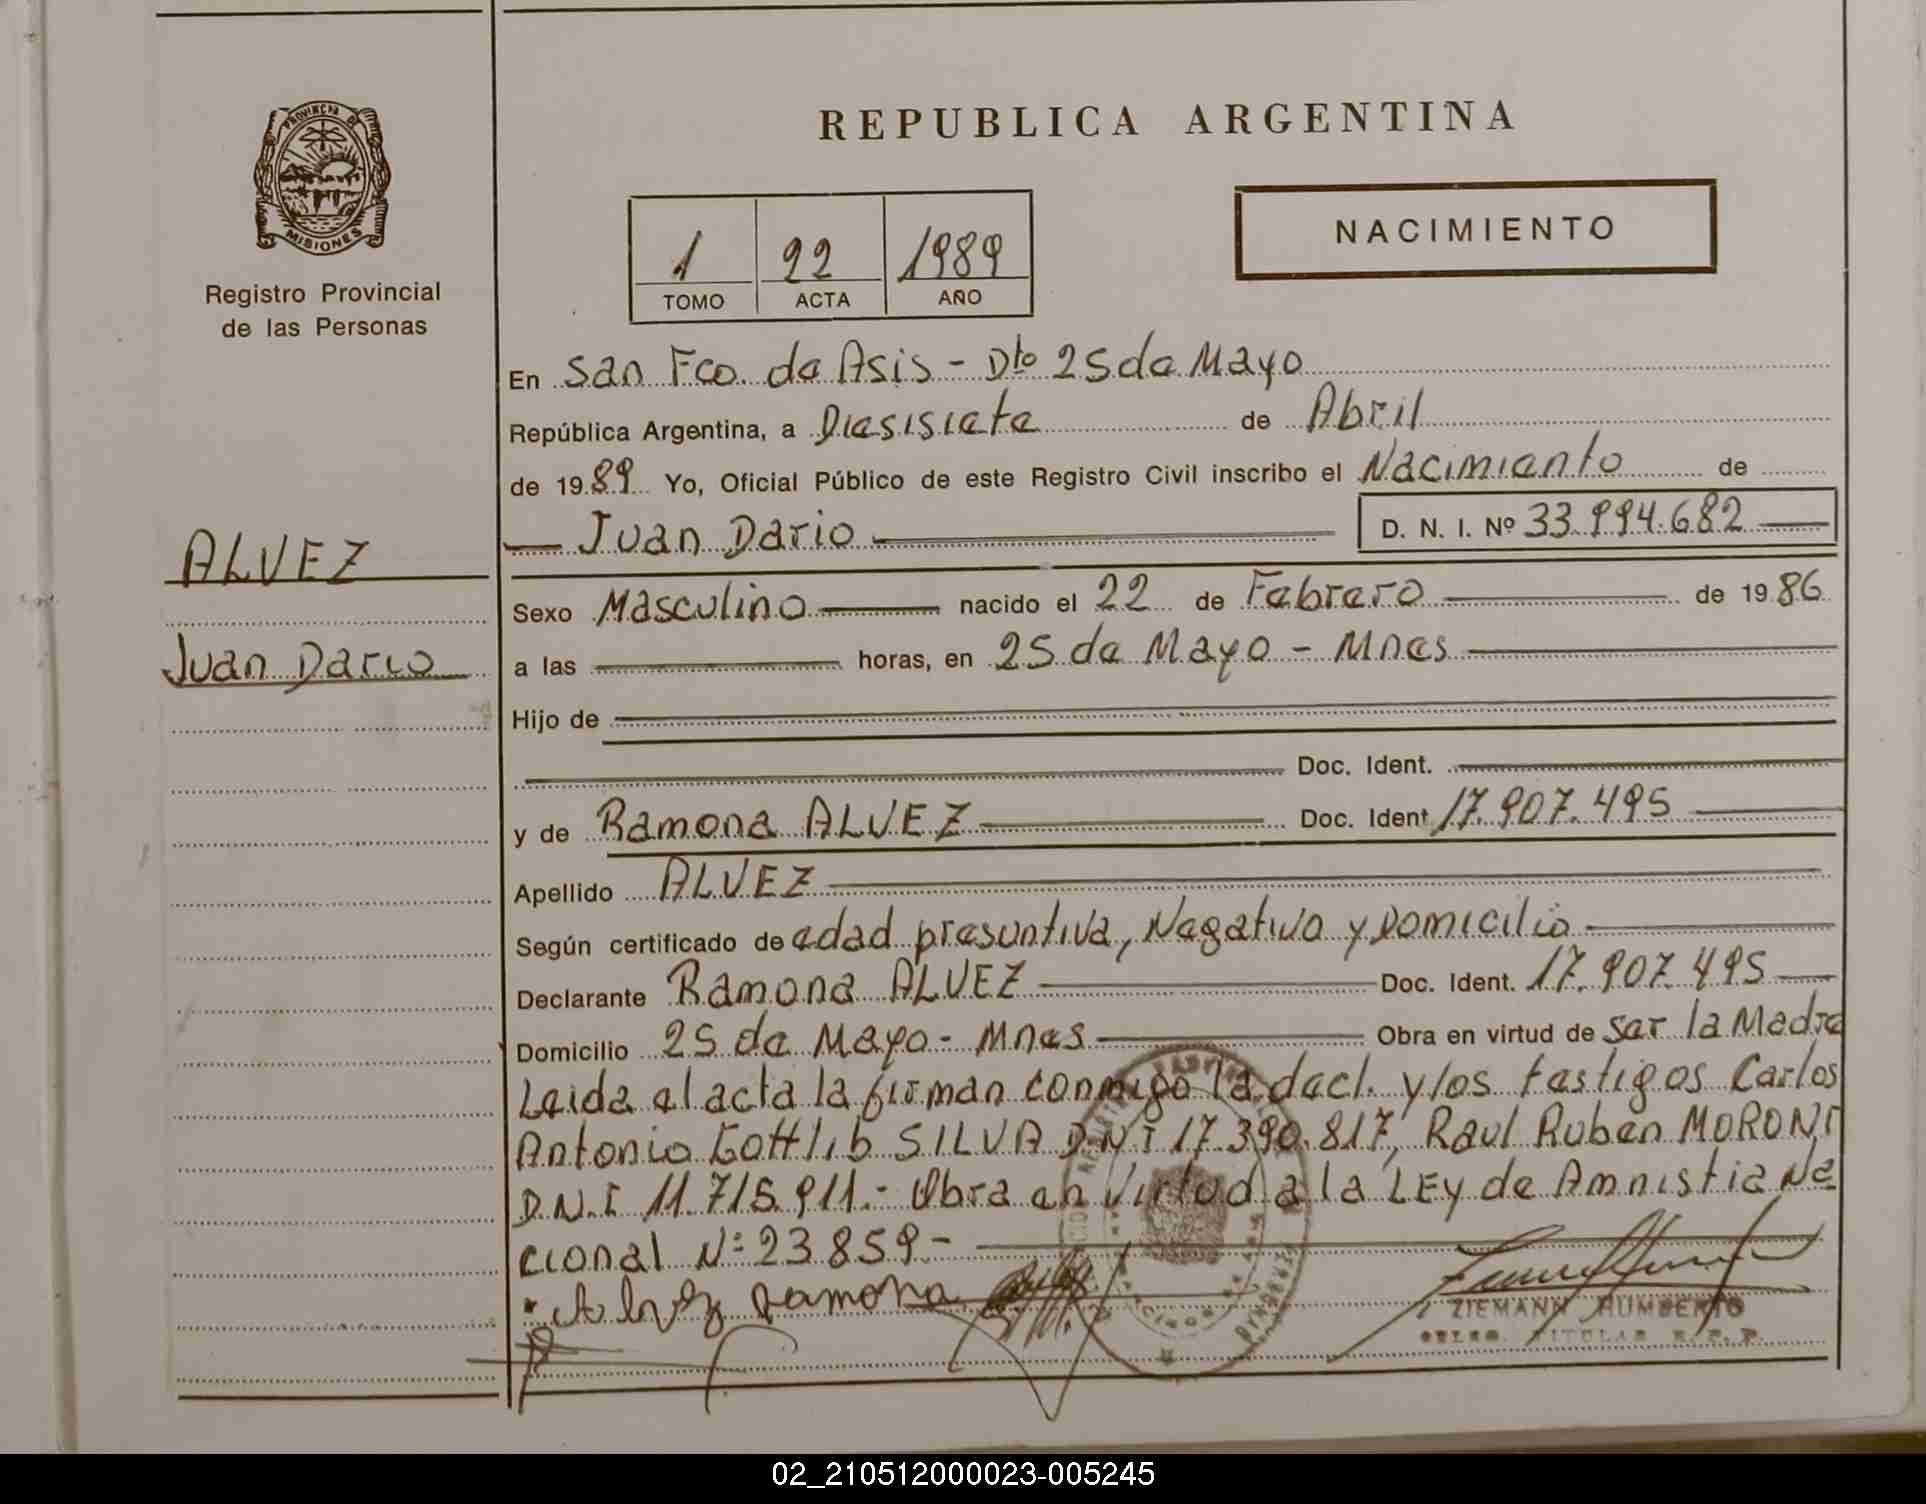 PROVINCIA DE
MISIONES
Registro Provincial
de las Personas
ALVEZ
Juan Dario
REPUBLICA ARGENTINA
NACIMIENTO
1 22 1989
TOMO ACTA AÑO
En San Fco. de Asis - Dto 25 de Mayo
República Argentina, a Diesisiete de Abril
de 1989 Yo, Oficial Público de este Registro Civil inscribo el Nacimiento de
Juan Dario D. N. I. Nº 33.994.682
Sexo Masculino nacido el 22 de Febrero de 1986
a las horas, en 25 de Mayo - Mnes
Hijo de
Doc. Ident.
y de Ramona ALVEZ Doc. Ident 17.907.495
Apellido ALVEZ
Según certificado de edad presuntiva, Negativo y Domicilio
Declarante Ramona ALVEZ Doc. Ident. 17.907.495
Domicilio 25 de Mayo - Mnes Obra en virtud de ser la Madre
Leida el acta la firman conmigo la decl. y los testigos Carlos
Antonio Gottlib SILVA D.N.I 17.390.817, Raul Ruben MORONI
D.N.I 11.715.911.- Obra en virtud a la LEy de Amnistia Na
cional Nº 23.859-
Alvez ramona
ZIEMANN HUMBERTO
TITULAR R.P.P.
02_210512000023-005245